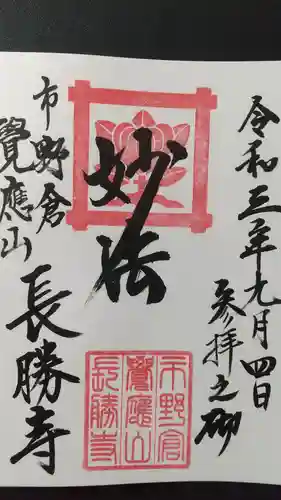 令和三年九月四日
参拝之砌
妙法
市野倉
覺應山
長勝寺
市野倉
鷲應山
長勝寺